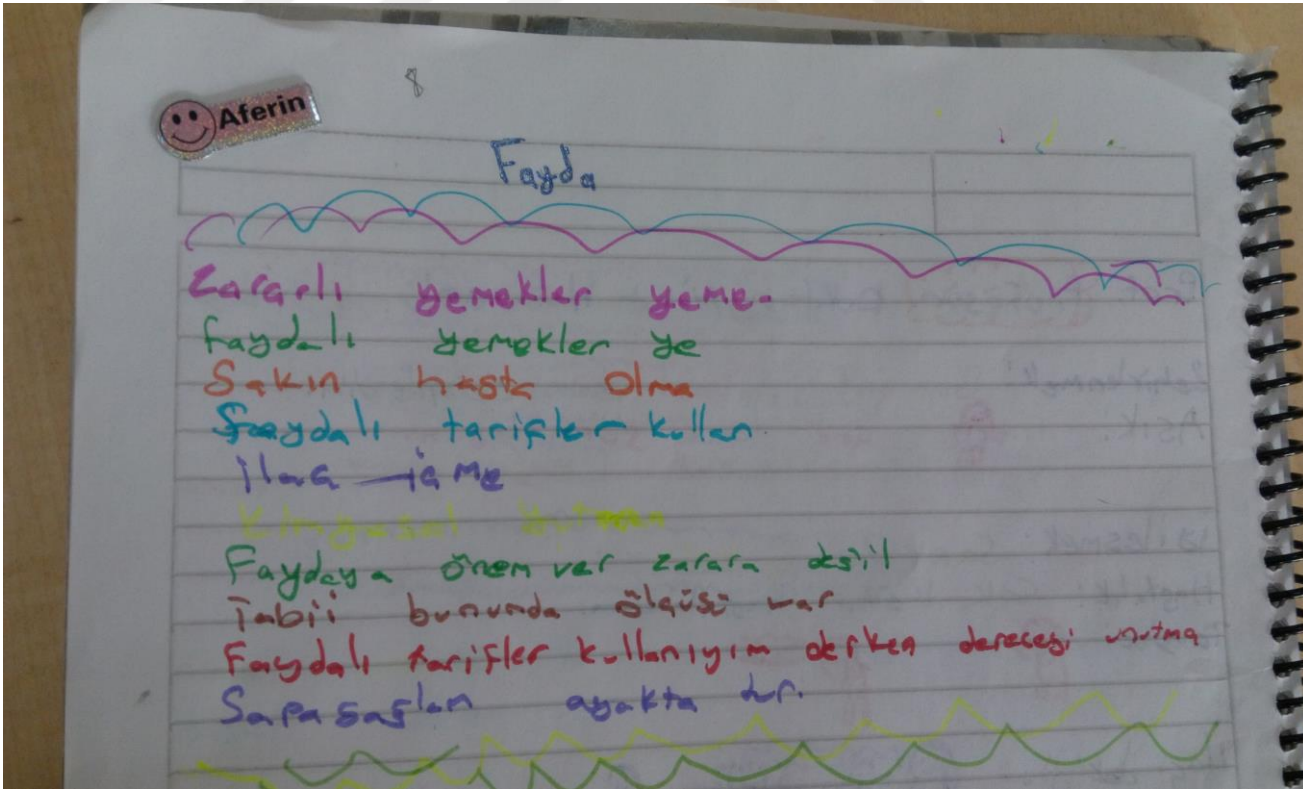 8
Aferin
Fayda
Zararlı yemekler yeme.
faydalı yemekler ye
Sakın hasta olma
faydalı tarifler kullan.
ilaç içme
Kimyasal yutma
Faydaya önem ver zarara değil
Tabii bununda ölçüsü var
Faydalı tarifler kullanıyım derken dereceyi unutma
Sapasağlam ayakta dur.